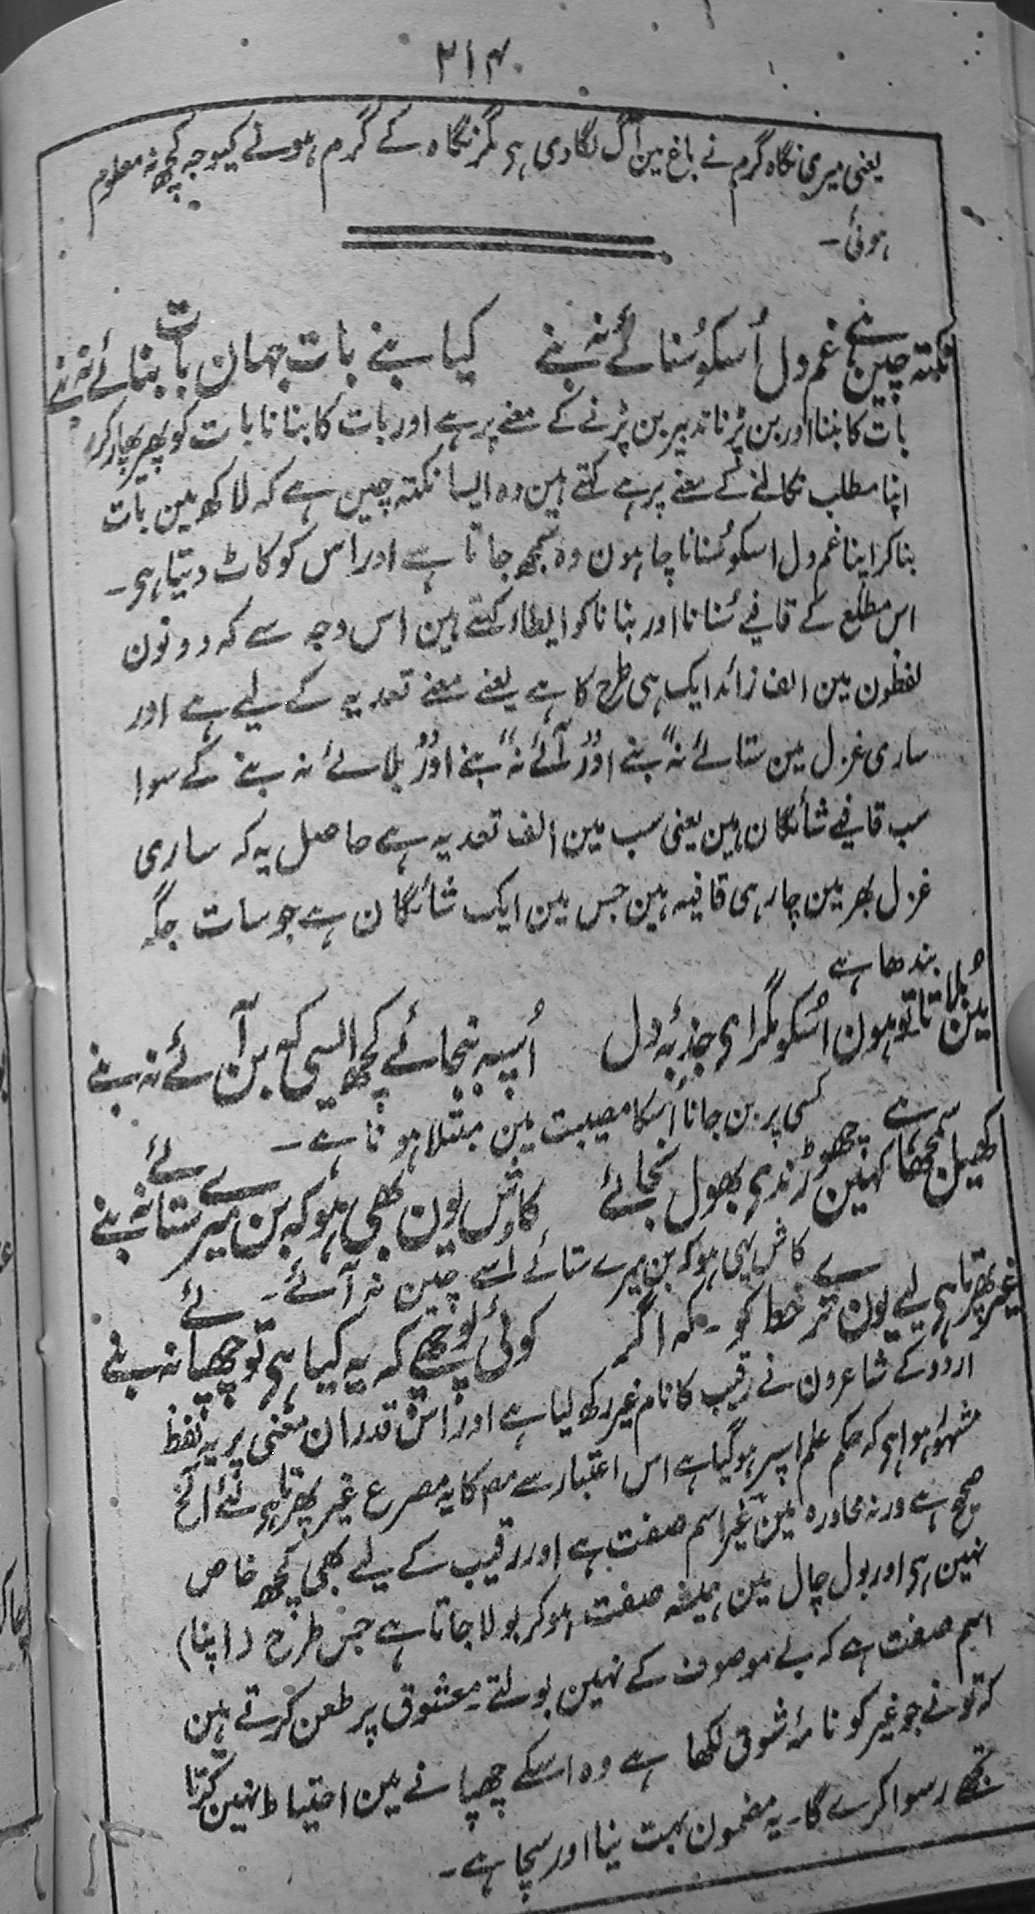 ۲۱۴
یعنی میری نگاہ گرم نے باغ مین آگ لگا دی ہی مگر نگاہ کے گرم ہونے کیوجہ کچھ نہ معلوم
ہوئی۔
نکتہ چین ہے غم دل اُسکو سُنائے نہ بنے کیا بنے بات جہان بات بنائے نہ بنے
بات کا بننا اور بن پڑنا تدبیر بن پڑنے کے معنے پر ہے اور بات کا بنانا بات کو پھیر پھار کر
اپنا مطلب نکالنے کے معنے پر ہے کہتے ہین وہ ایسا نکتہ چین ہے کہ لاکھ مین بات
بنا کر اپنا غم دل اسکو سُنانا چاہون وہ سمجھ جاتا ہے اور اس کو کاٹ دیتا ہی۔
اس مطلع کے قافیے سُنانا اور بنانا کو ایطاء کہتے ہین اس وجہ سے کہ دونون
لفظون مین الف زائد ایک ہی طرح کا ہے یعنے معنے تعدیہ کے لیے ہے اور
ساری غزل مین ستائے نہ بنے اور آئے نہ بنے اور بلائے نہ بنے کے سوا
سب قافیے شائگان ہین یعنی سب مین الف تعدیہ ہے حاصل یہ کہ ساری
غزل بھر مین چار ہی قافیہ ہین جس مین ایک شائگان ہے جو سات جگہ
بندھا ہے
مین بلاتا تو ہون اُسکو مگر ای جذبۂ دل اُسپہ بنجائے کچھ ایسی کہ بن آئے نہ بنے
کسی پر بن جانا اُسکا مصیبت مین مبتلا ہونا ہے۔
کھیل سمجھا ہے کہین چھوڑ ندے بھول نجائے کاش یون بھی ہو کہ بن میرے ستائے نہ بنے
کاش یہی ہو کہ بن میرے ستائے اسے چین نہ آئے۔
غیر پھرتا ہی لیے یون ترے خط کو۔ کہ اگر کوئی پوچھے کہ یہ کیا ہی تو چھپائے نہ بنے
اردو کے شاعرون نے رقیب کا نام غیر رکھ لیا ہے اور اس قدر ان معنی پر یہ لفظ
مشہور ہوا ہی کہ حکم علم اسپر ہو گیا ہے اس اعتبار سے مصنف کا یہ مصرع غیر پھرتا ہی لئے الخ
صحیح ہے ورنہ محاورہ مین غیر اسم صفت ہے اور رقیب کے لیے بھی کچھ خاص
نہین ہی اور بول چال مین ہمیشہ صفت ہو کر بولا جاتا ہے جس طرح (اپنا)
اسم صفت ہے کہ بے موصوف کے نہین بولتے۔ معشوق پر طعن کرتے ہین
کہ تو نے جو غیر کو نامۂ شوق لکھا ہے وہ اسکے چھپانے مین احتیاط نہین کرتا
تجھے رسوا کرے گا۔ یہ مضمون بہت نیا اور سچا ہے۔